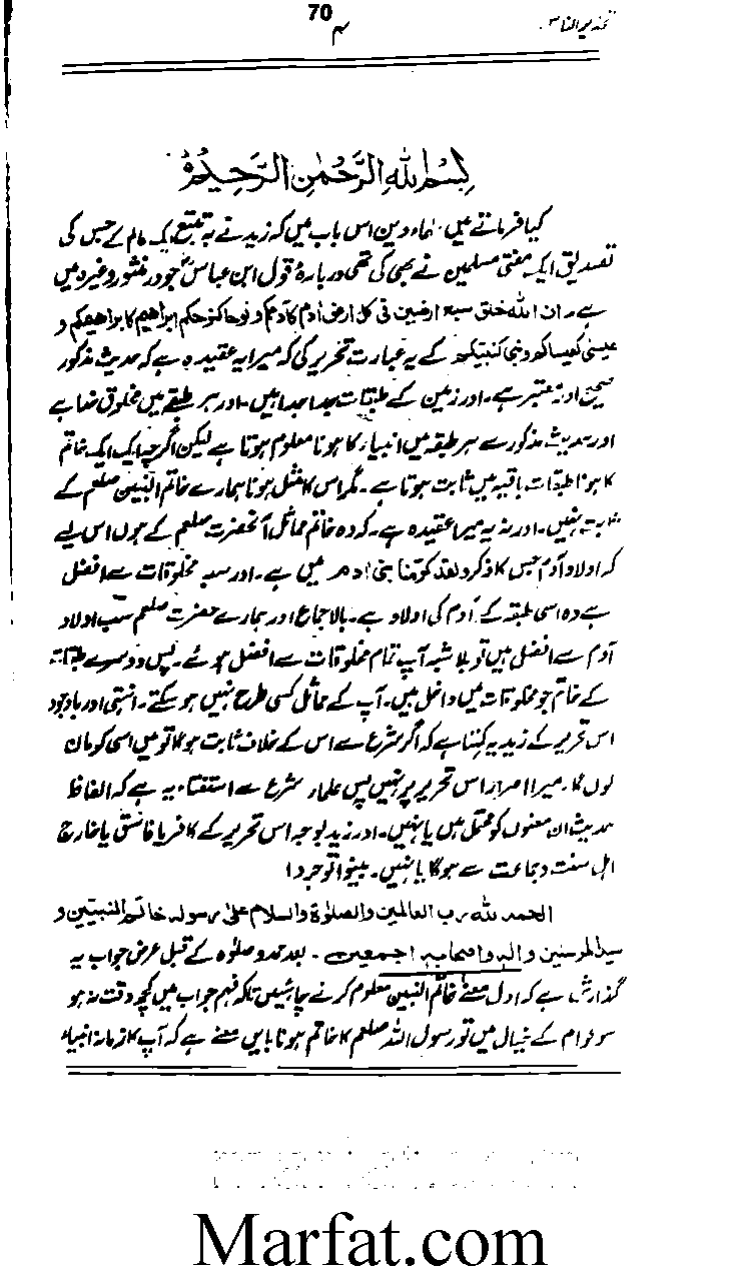 70
تحذیر الناس
۳
بسم اللہ الرحمن الرحیم
کیا فرماتے ہیں علماء دین اس باب میں کہ زید نے بہ تتبع ایک عالم کے جس کی
تصدیق ایک مفتی مسلمین نے بھی کی تھی دربارۂ قول ابن عباسؓ جو در منثور وغیرہ میں
ہے۔ ان اللہ خلق سبع ارضین فی کل ارض آدم کآدمکم ونوح کنوحکم ابراھیم کابراھیمکم و
عیسیٰ کعیساکم ونبی کنبیکم کے یہ عبارت تحریر کی کہ میرا یہ عقیدہ ہے کہ حدیث مذکور
صحیح اور معتبر ہے۔ اور زمین کے طبقات جدا جدا ہیں۔ اور ہر طبقے میں مخلوق خدا ہے
اور حدیث مذکور سے ہر طبقہ میں انبیاء کا ہونا معلوم ہوتا ہے لیکن اگرچہ ایک ایک خاتم
کا ہونا طبقات باقیہ میں ثابت ہوتا ہے۔ مگر اس کا مثل ہونا ہمارے خاتم النبیین صلعم کے
ثابت نہیں۔ اور نہ یہ میرا عقیدہ ہے۔ کہ وہ خاتم مماثل آنحضرت صلعم کے ہوں اس لیے
کہ اولاد آدم جس کا ذکر ولقد کرمنا بنی آدم میں ہے۔ اور سب مخلوقات سے افضل
ہے وہ اسی طبقہ کے آدم کی اولاد ہے۔ بالاجماع اور ہمارے حضرت صلعم سب اولاد
آدم سے افضل ہیں تو بلا شبہ آپ تمام مخلوقات سے افضل ہوئے۔ پس دوسرے طبقات
کے خاتم جو مخلوقات میں داخل ہیں۔ آپ کے مماثل کسی طرح نہیں ہو سکتے۔ انتہی اور باوجود
اس تحریر کے زید یہ کہتا ہے کہ اگر شرع سے اس کے خلاف ثابت ہوگا تو میں اسی کو مان
لوں گا۔ میرا اصرار اس تحریر پر نہیں پس علماء شرع سے استفتاء یہ ہے کہ الفاظ
حدیث ان معنوں کو محتمل ہیں یا نہیں۔ اور زید بوجہ اس تحریر کے کافر یا فاسق یا خارج
اہل سنت و جماعت سے ہوگا یا نہیں۔ بینوا توجروا
الحمد للہ رب العالمین والصلوٰۃ والسلام علیٰ رسولہ خاتم النبیین و
سید المرسلین والہ واصحابہ اجمعین۔ بعد حمد و صلوٰۃ کے قبل عرض جواب یہ
گذارش ہے کہ اول معنے خاتم النبیین معلوم کرنے چاہئیں تاکہ فہم جواب میں کچھ دقت نہ ہو
سو عوام کے خیال میں تو رسول اللہ صلعم کا خاتم ہونا بایں معنے ہے کہ آپ کا زمانہ انبیاء
Marfat.com